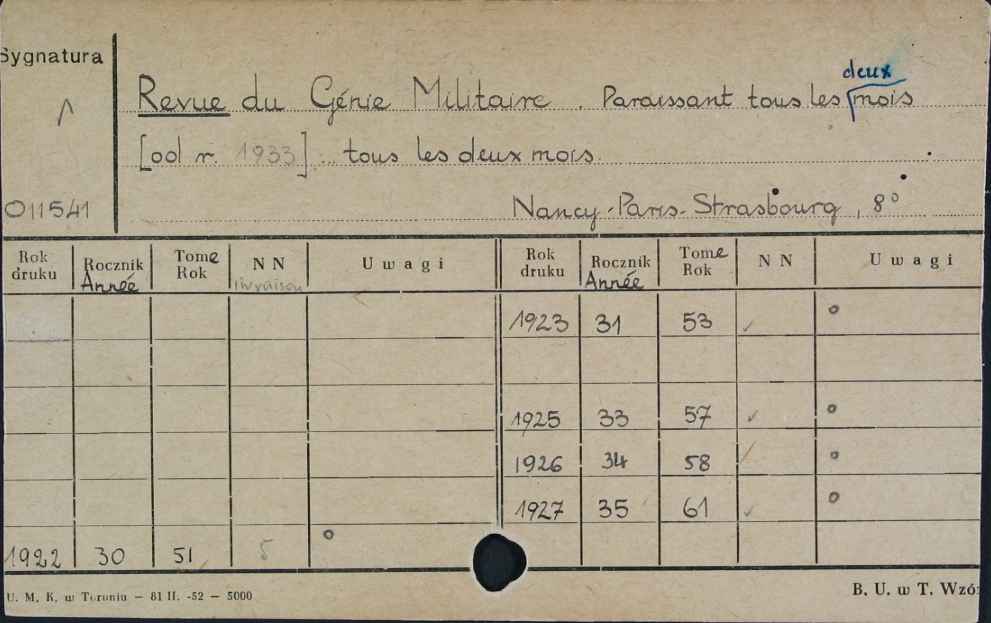 Sygnatura
deux
Revue du Génie Militaire. Paraissant tous les mois
[ool r. 1933] : tous les deux mois.
011541
Nancy-Paris-Strasbourg, 8°
Rok druku Rocznik Année Tome Rok NN livraison Uwagi Rok druku Rocznik Année Tome Rok NN Uwagi
1923 31 53 ✓ °
1925 33 57 ✓ °
1926 34 58 ✓ °
1927 35 61 ✓ °
1922 30 51 5 °
U. M. K. w Toruniu — 81 II. -52 — 5000
B. U. w T. Wzó